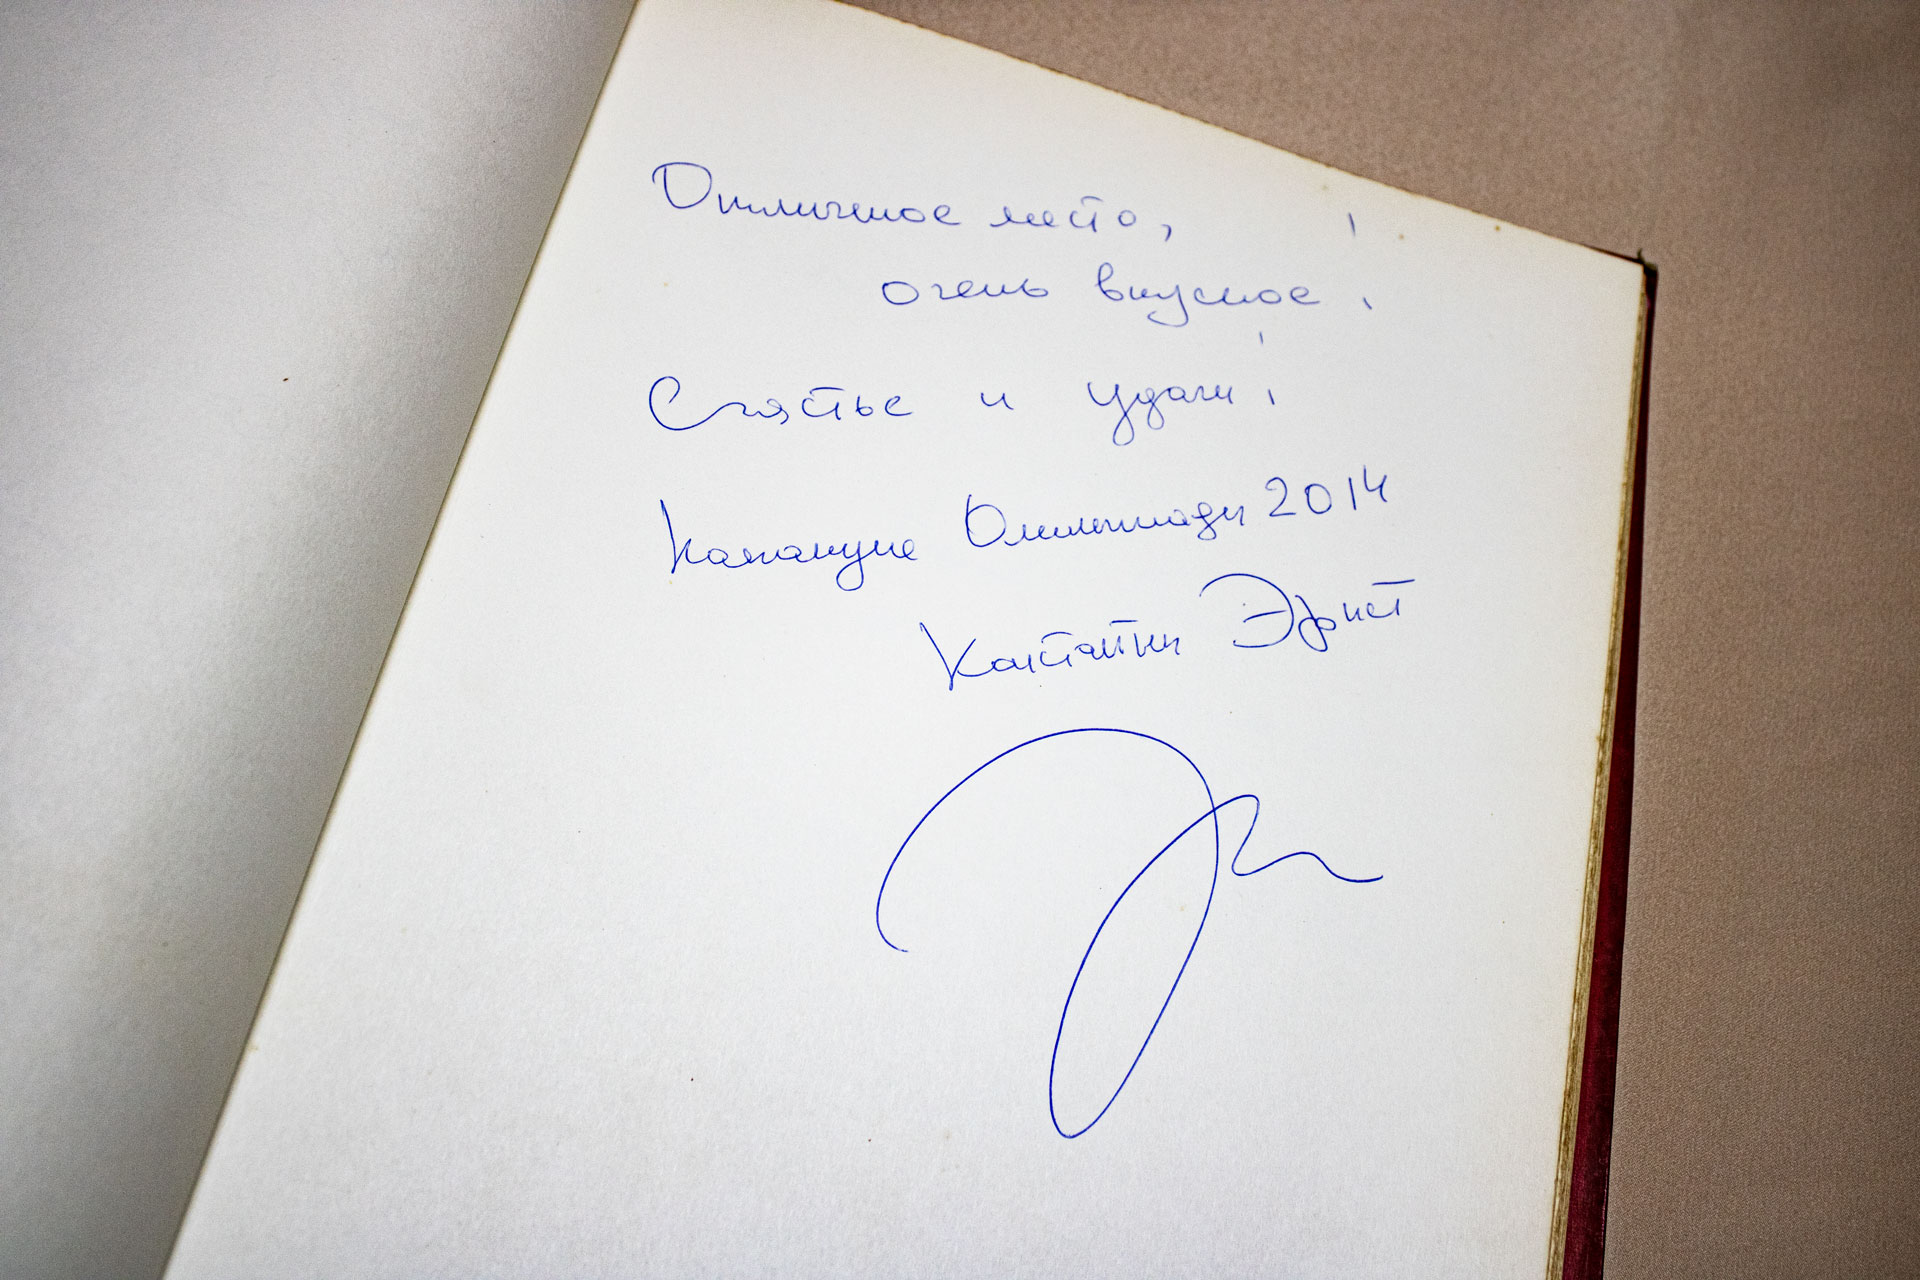 Отличное место,
очень вкусное!
Счастье и удачи!
Накануне Олимпиады 2014
Константин Эрнст